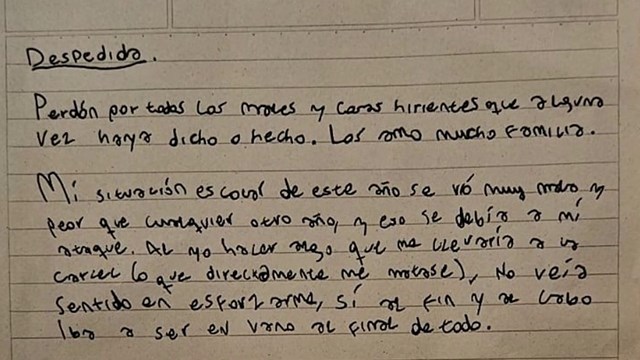 Despedida.
Perdón por todas las males y caras hirientes que alguna
vez haya dicho o hecho. Los amo mucho familia.
Mi situación escolar de este año se vó muy malo y
peor que cualquier otro año, y eso se debía a mí
ataque. Al yo hacer algo que me llevaría a la
carcel (o que directamente me matase), No veía
sentido en esforzarme, sí al fin y al cabo
iba a ser en vano al final de todo.